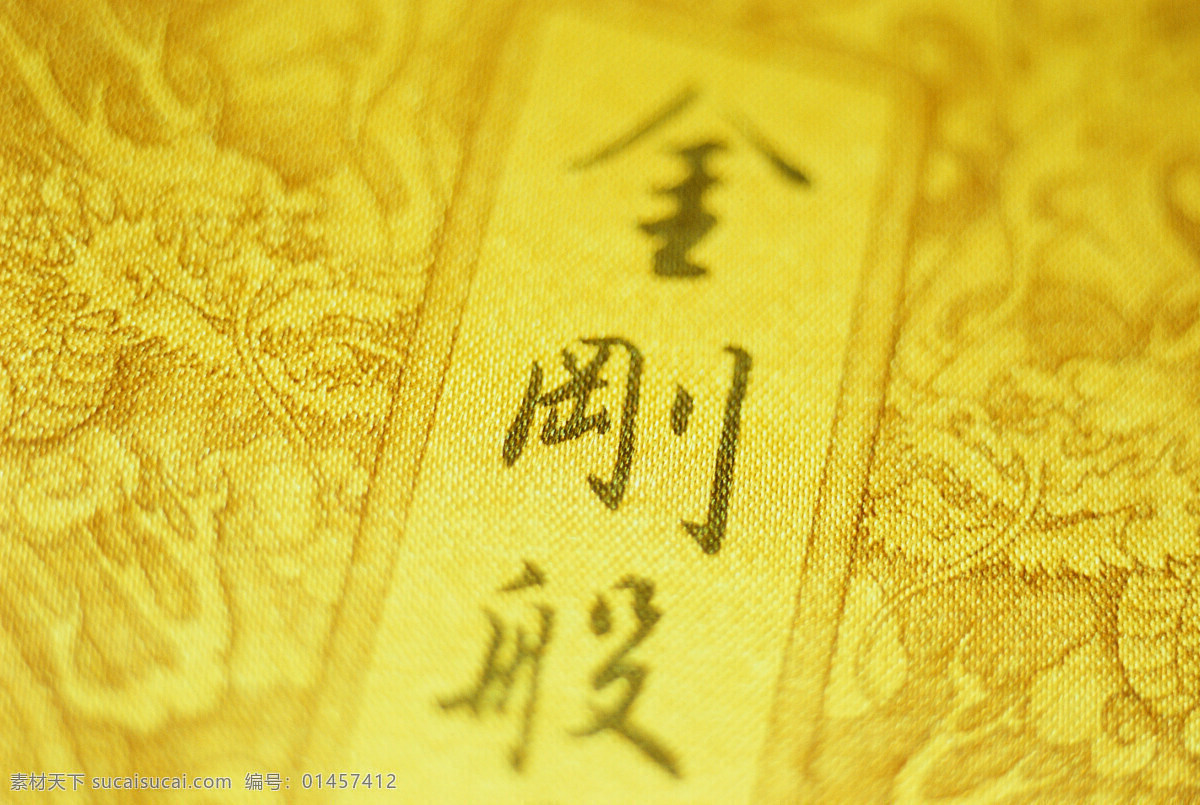 金
剛
般
素材天下 sucaisucai.com 编号：01457412